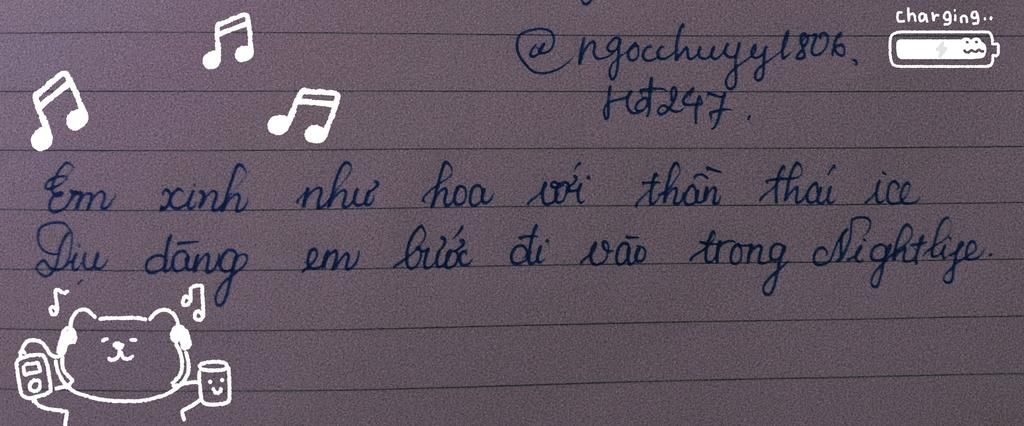 charging..
@ngocchuyy1806.
Hđ247.
Em xinh như hoa với thần thái ice
Dịu dàng em bước đi vào trong Nightlife.